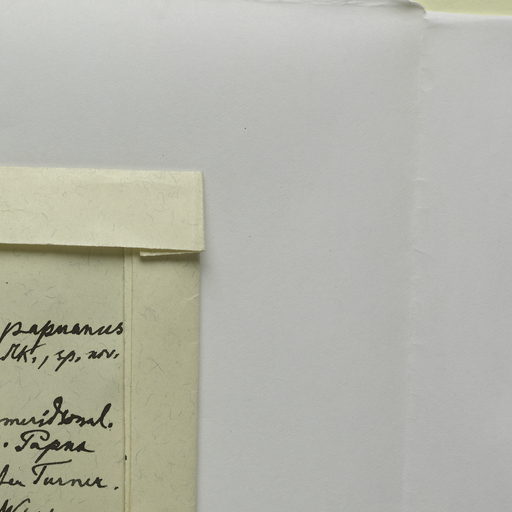 papuanus
sp. nov.
meridional.
Papua
Turner.